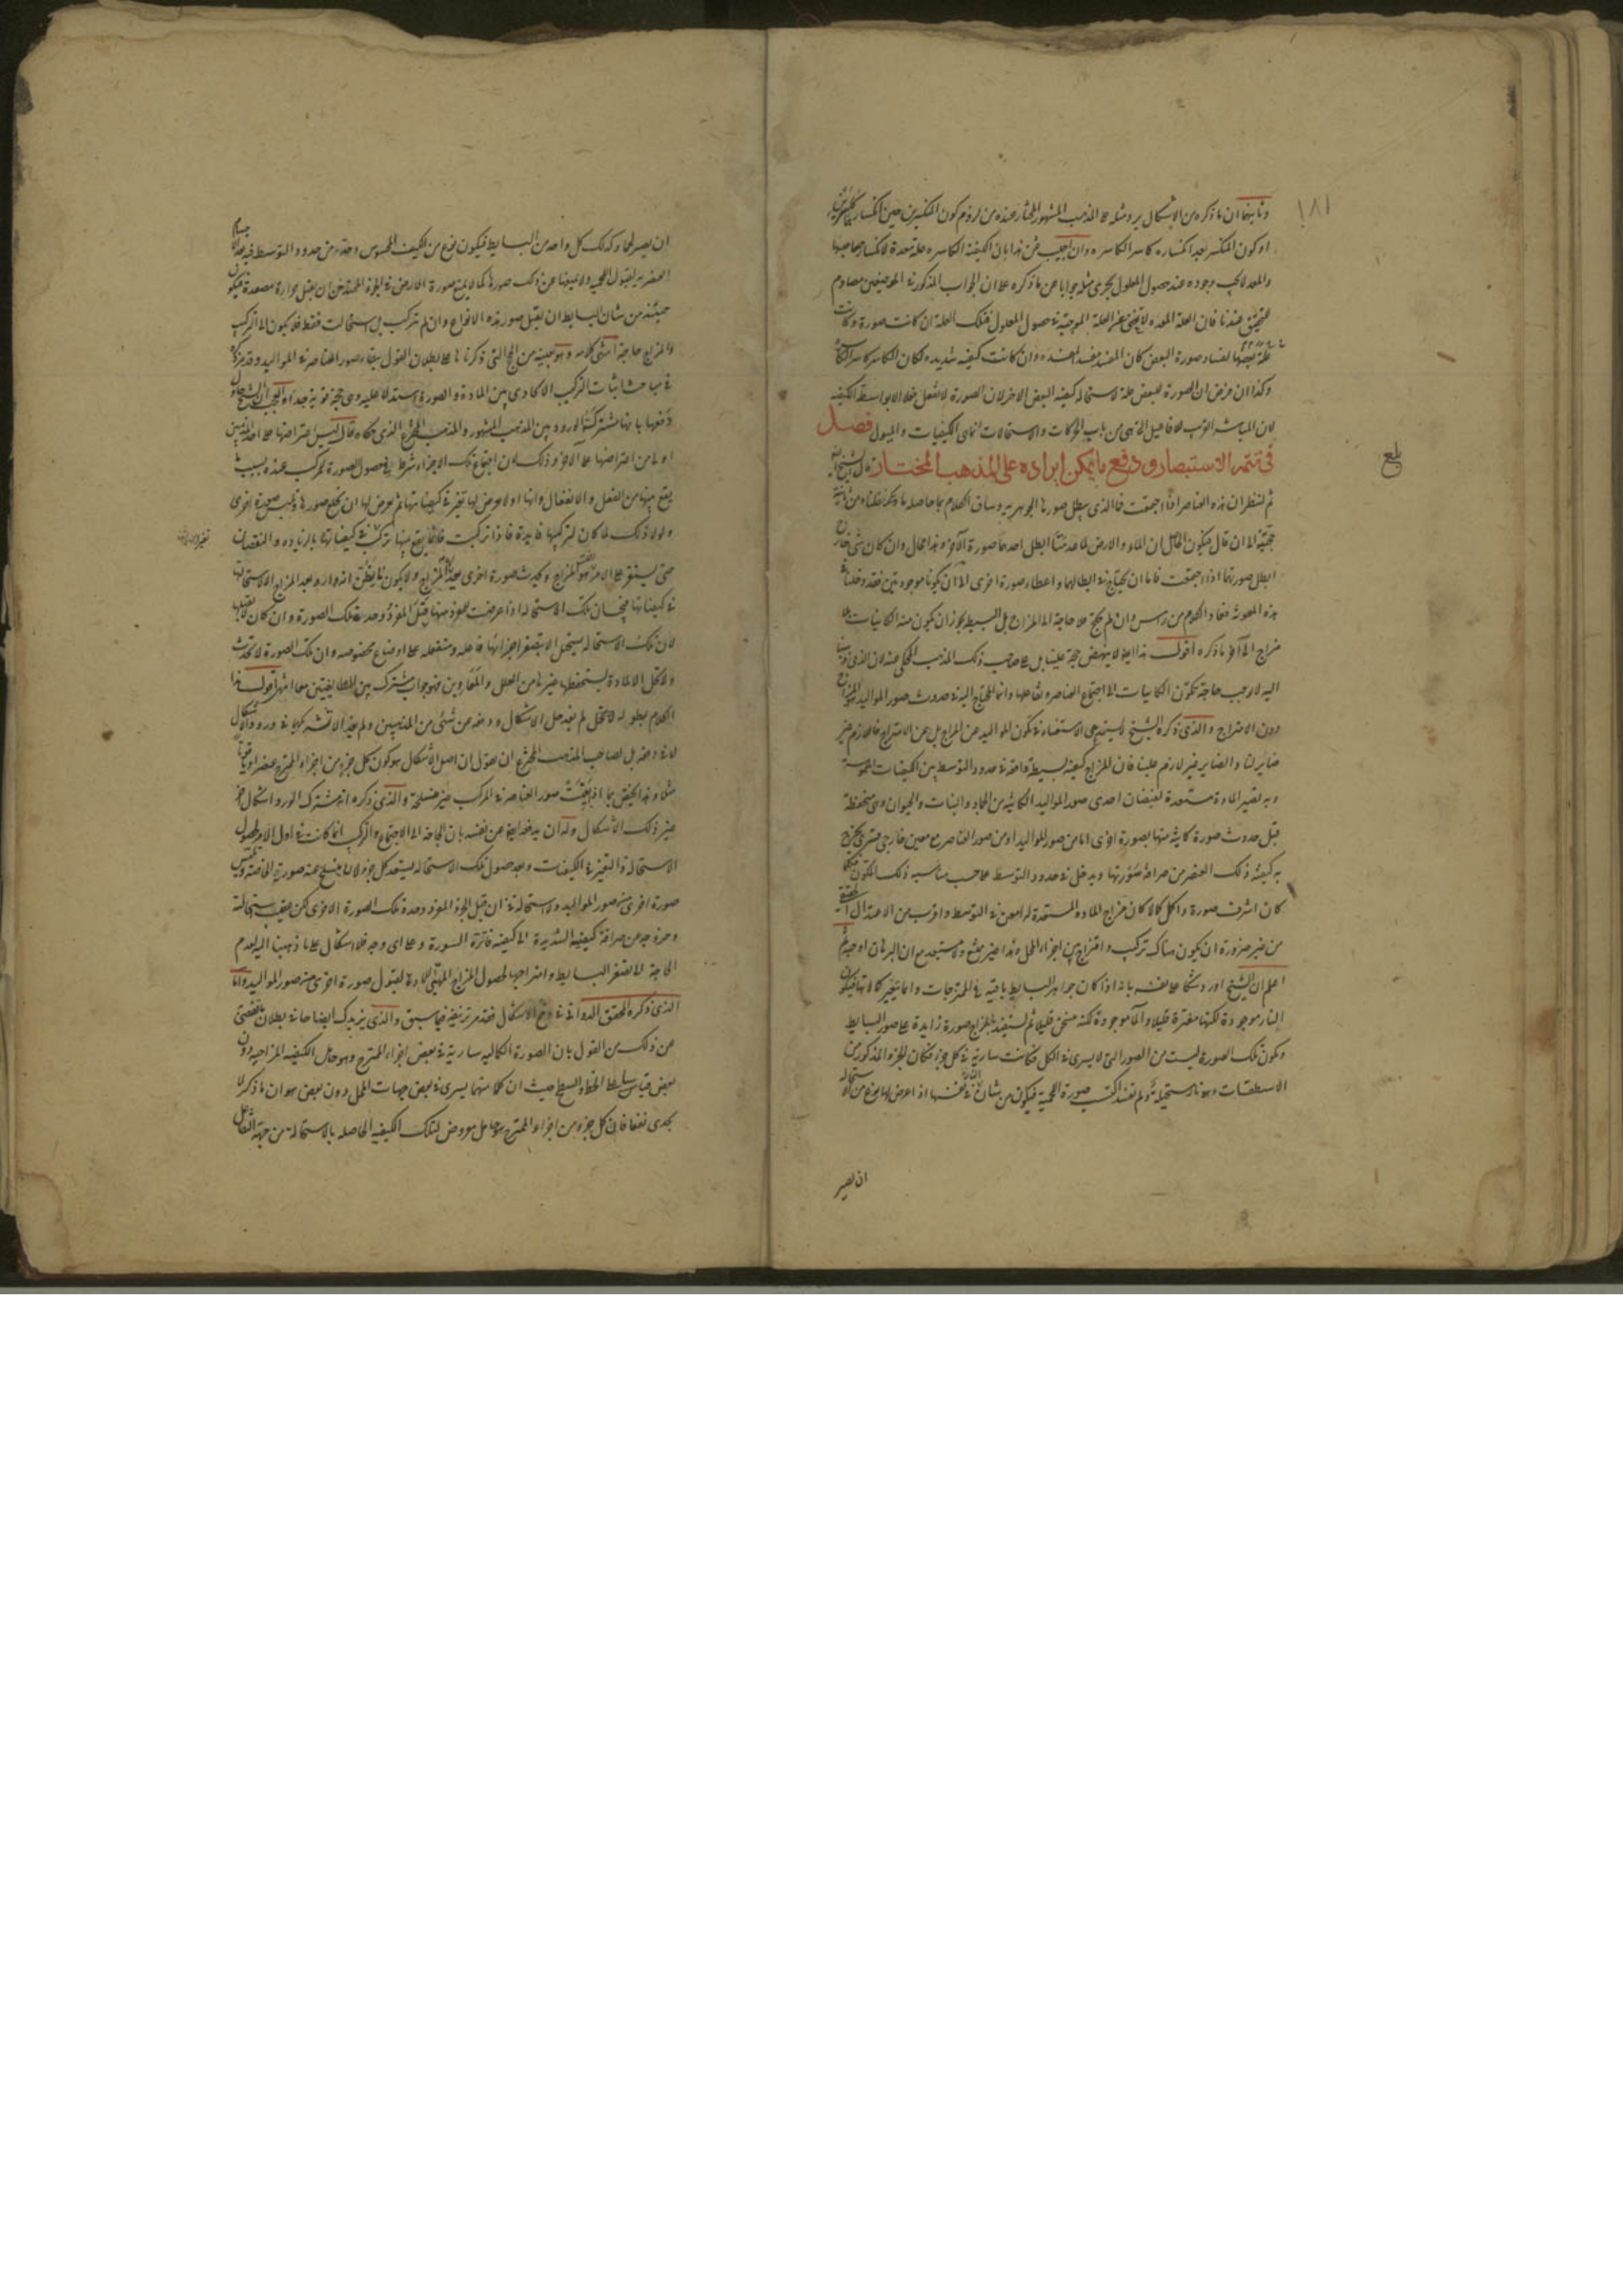 ١٨١
وثانيهما ان ما ذكره من الاشكال يرد مثله على المذهب المشهور المختار عنده من لزوم كون المنكسرين حين انكسارهما كاسرين
او كون المنكسر بعد انكساره كاسرا لكاسره وان اجيب عن هذا بان الكيفية الكاسرة علة معدة لانكسار صاحبها
والمعد لا يجب وجوده عند حصول المعلول يجرى مثله جوابا عن ما ذكره على ان الجواب المذكور في الموضعين مصادم
للتحقيق عندنا فان العلة المعدة لا تغنى عن العلة الموجبة في حصول المعلول فتلك العلة ان كانت صورة وكانت
علة بعضها لفساد صورة البعض كان المفسد مفسدا لمفسده وان كانت كيفية شديدة لكان الكاسر كاسرا
وكذا ان فرض ان الصورة للبعض علة لاستحالة كيفية البعض الاخر لان الصورة لا تفعل فعلا الا بواسطة الكيفية
لان المباشر القريب للافاعيل التي هي من باب الحركات والاستحالات انما هي الكيفيات والميول فصل
في تتمة الاستبصار ودفع ما يمكن ايراده على المذهب المختار قال الشيخ
بلغ
ثم لننظر ان هذه العناصر اذا اجتمعت فما الذى يبطل صورها الجوهرية وساق الكلام بما حاصله ما ذكر نقلناه من
الى ان قال فيكون الحاصل ان الماء والارض لما عدمتا ابطل احدهما صورة الآخر وهذا محال وان كان شئ خارج
ابطل صورتهما اذا اجتمعت فاما ان يحتاج في ابطالهما واعطاء صورة اخرى الى ان يكونا موجودتين فقد دخلتا في
هذه المعونة فعاد الكلام من رأس وان لم يحتج فلا حاجة الى المزاج بل البسيط يجوز ان يكون منه الكاينات بلا
مزاج الى آخر ما ذكره اقول هذا ايضا لا ينهض حجة علينا بل على صاحب ذلك المذهب المحكى عنه لان الذى ذهبنا
اليه لا يوجب حاجة تكون الكاينات الى اجتماع العناصر وتفاعلها وانما المحتاج اليه في حدوث صور المواليد المزاج
دون الامتزاج والذى ذكره الشيخ ليستدعى الاستغناء في تكون المواليد عن المزاج بل عن الامتزاج فاللازم غير
ضاير لنا والضاير غير لازم علينا فان المزاج كيفية بسيطة واقعة في حدود التوسط بين الكيفيات الملموسة
وبه تصير المادة مستعدة لفيضان احدى صور المواليد الكاينة من الجماد والنبات والحيوان وهي منحفظة
قبل حدوث صورة كاينة منها بصورة اخرى اما من صور المواليد او من صور العناصر مع معين خارجى قسرى يخرج
به كيفية ذلك العنصر من صرافة سورتها ويدخل في حدود التوسط على حسب مناسبة ذلك المتكون فكلما
كان اشرف صورة واكمل كمالا كان مزاج المادة المستعدة له امعن في التوسط واقرب من الاعتدال الحقيقي
من غير ضرورة ان يكون هناك تركيب وامتزاج بين اجزاء المحل وهذا غير ممتنع ولا مستبعد مع ان البرهان اوجبه ثم
اعلم ان الشيخ اورد شكا على نفسه بانه اذا كان جواهر البسايط باقية في الممتزجات وانما يتغير كمالاتها فيكون
النار موجودة لكنها مفترة قليلا والماء موجودة لكنه متسخن قليلا ثم يستفيد بالمزاج صورة زايدة على صور البسايط
ويكون تلك الصورة ليست من الصور التي لا يسرى في الكل فكانت سارية في كل جزء فكان الجزء المذكور من
الاسطقسات وهو نار مستحيلة ولم تفسد اكتسب صورة اللحمية فيكون من شان النار في نفسها اذا عرض لها نوع من الاستحالة
ان يصير
ان يصير لحما وكذلك كل واحد من البسايط فيكون نوع من الكيف المحسوس وحد من حدود التوسط فيه يعد الاجسام
العنصرية لقبول اللحمية ولا يمنعها عن ذلك صورها كما لا يمنع صورة الارض في الجزء المتدخن ان يقبل حرارة مصعدة فيكون
حينئذ من شان البسايط ان يقبل صور هذه الانواع وان لم تتركب بل استحالت فقط فلا يكون الى التركيب
والمزاج حاجة انتهى كلامه وهو بعينه من الحجج التي ذكرناها على بطلان القول ببقاء صور العناصر في المواليد وقد مر ذكره
في مباحث اثبات التركيب الاتحادى بين المادة والصورة استدلالا عليه وهي حجة قوية جدا والعجب ان الشيخ حاول
دفعها بانها مشتركة الورود بين المذهب المشهور والمذهب المخترع الذى حكاه قال ليس اعتراضها على احد المذهبين
اولى من اعتراضها على الآخر وذلك لان اجتماع تلك الاجزاء شرط في حصول الصورة للمركب عنده بسبب ما
يقع بينها من الفعل والانفعال وانها اولا يعرض لها تغير في كيفياتها ثم يعرض لها ان تخلع صورها وتلبس صورة اخرى
ولولا ذلك لما كان لتركيبها فايدة فاذا تركبت فانما يقع بينها تركيب في كيفياتها بالزيادة والنقصان
حتى يستقر على الامر الذى هو المزاج ويحدث صورة اخرى بعد المزاج ولا يكون ما يظن انه وارد بعد المزاج الا لاستحالتها
في كيفياتها فيجب ان تلك الاستحالة اذا عرضت للمفرد منها قبل المفرد وحده تلك الصورة وان كان لا يقبلها
لان تلك الاستحالة يستحيل الا بتصغر اجزائها فاعلة ومنفعلة على اوضاع مخصوصة وان تلك الصورة لا تحدث
ولا تحل الا لمادة يستحفظها غيرها من العلل والمقارنين فهو جواب مشترك بين الطايفتين معا انتهى اقول هذا
الكلام بطوله لا يحل لم يفد حل الاشكال ودفعه عن شئ من المذهبين ولم يفد الا تشريكهما في ورود الاشكال
لا في دفعه بل لصاحب المذهب المخترع ان يقول ان اصل الاشكال هو كون كل جزء من اجزاء الممتزج عنصرا وياقوتا
مثلا وهذا يختص بما اذا بقيت صور العناصر في المركب غير منسلخة والذى ذكره انه مشترك الورود اشكال آخر
غير ذلك الاشكال وله ان يدفعه ايضا عن نفسه بان الحاجة الى الاجتماع والتركيب انما كانت في اول الامر لحصول
الاستحالة والتغير في الكيفيات وبعد حصول تلك الاستحالة يستعد كل جزء لان ينسلخ عنه صورته الخاصة ويلبس
صورة اخرى من صور المواليد ولا استحالة في ان يقبل الجزء المفرد وحده تلك الصورة الاخرى لكن عقيب استحالته
وخروجه عن صرافة كيفيته الشديدة الى كيفية فاترة السورة وعلى اى وجه فلا اشكال على ما ذهبنا اليه لعدم
الحاجة الى تصغر البسايط وامتزاجها لحصول المزاج المهيئ للمادة لقبول صورة اخرى من صور المواليد واما
الذى ذكره المحقق الدوانى في دفع الاشكال فقد مر تزييفه فيما سبق والذى يزيدك ايضاحا في بطلان ما تفصى
عن ذلك من القول بان الصورة الكمالية سارية في بعض اجزاء الممتزج وهو حامل الكيفية المزاجية دون
بعض قياسا على الخط والسطح حيث ان كلا منهما يسرى في بعض جهات المحل دون بعض هو ان ما ذكر لا
يجدى نفعا فان كل جزء من اجزاء الممتزج حامل معروض لتلك الكيفية الحاصلة بالاستحالة من جهة التفاعل